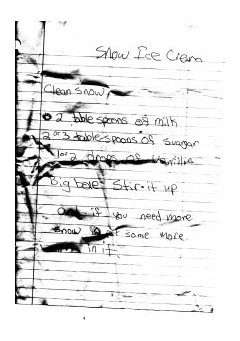 Snow Ice Cream
Clean snow,
2 table spoons of milk
2 or 3 table spoons of suagar
1 or 2 drops of vanillia
big bowe stir it up
if you need more
snow some more
in it.